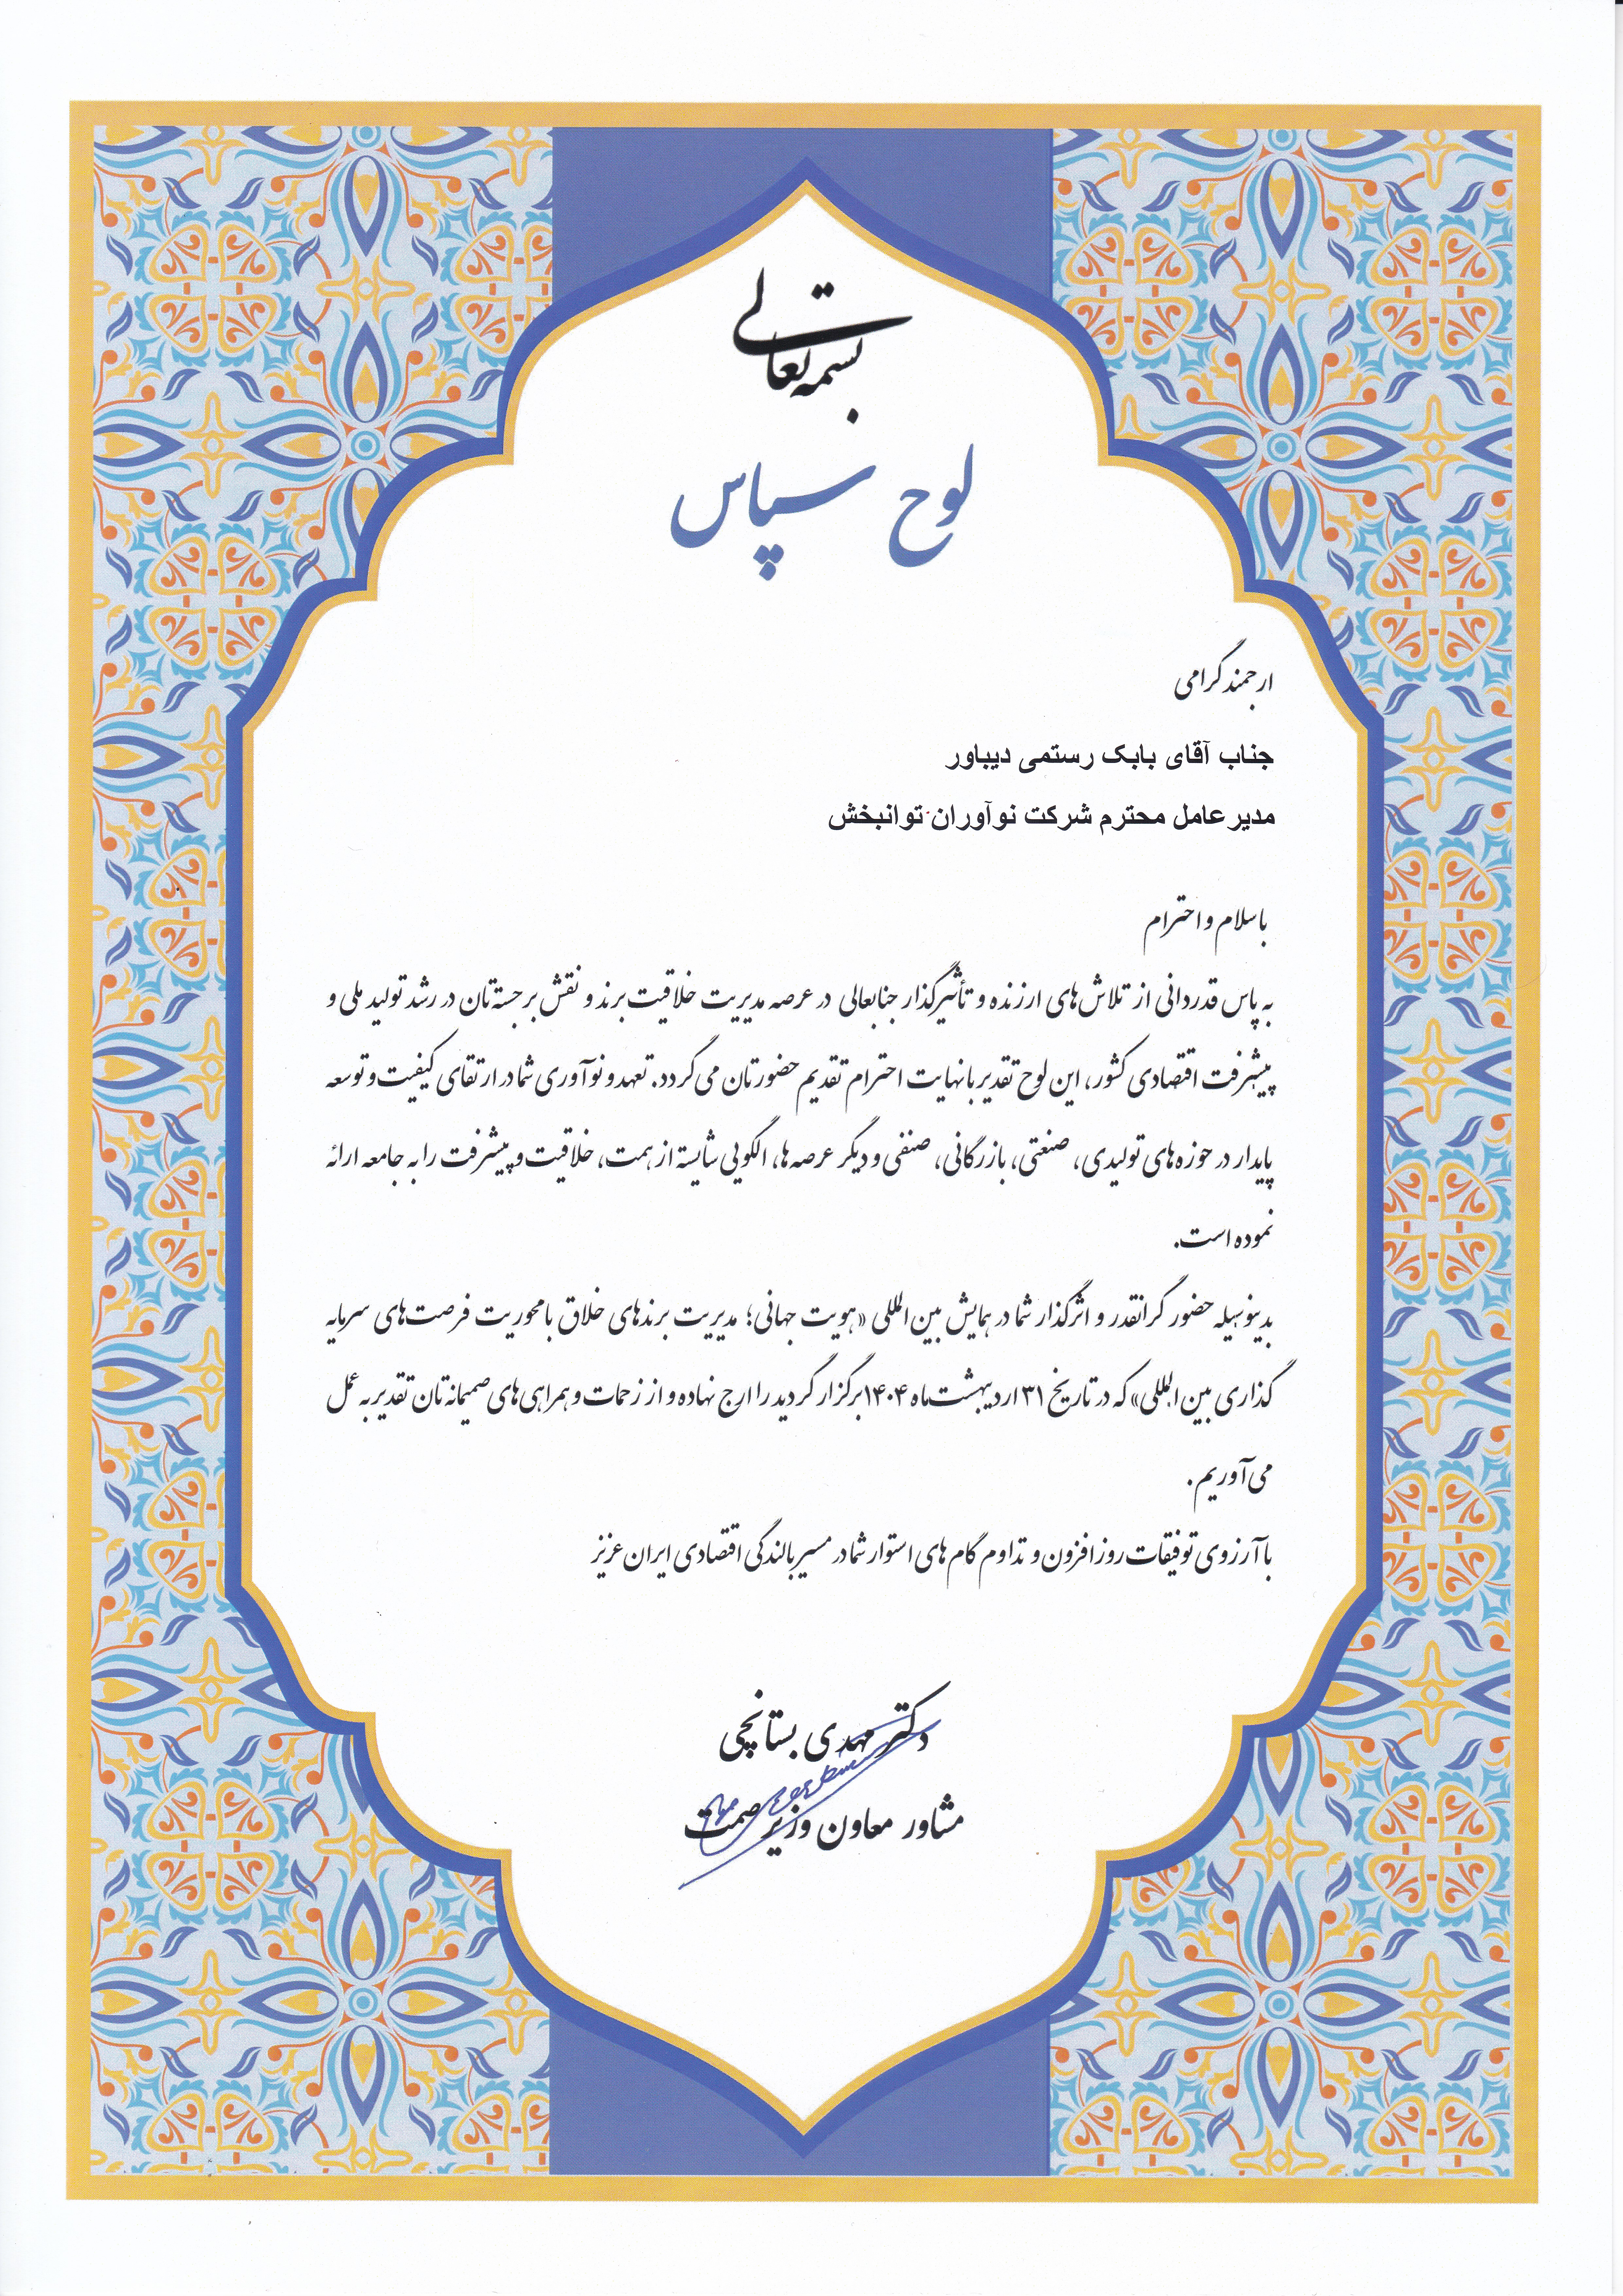 بسمه تعالی
لوح سپاس
ارجمند گرامی
جناب آقای بابک رستمی دیباور
مدیر عامل محترم شرکت نوآوران توانبخش
با سلام و احترام
به پاس قدردانی از تلاش‌های ارزنده و تأثیرگذار جنابعالی در عرصه مدیریت خلاقیت برند و نقش برجسته‌تان در رشد تولید ملی و
پیشرفت اقتصادی کشور، این لوح تقدیر با نهایت احترام تقدیم حضورتان می‌گردد. تعهد و نوآوری شما در ارتقای کیفیت و توسعه
پایدار در حوزه‌های تولیدی، صنعتی، بازرگانی، صنفی و دیگر عرصه‌ها، الگویی شایسته از همت، خلاقیت و پیشرفت را به جامعه ارائه
نموده است.
بدینوسیله حضور گرانقدر و اثرگذار شما در همایش بین‌المللی «هویت جهانی؛ مدیریت برندهای خلاق با محوریت فرصت‌های سرمایه
گذاری بین‌المللی» که در تاریخ ۳۱ اردیبهشت ماه ۱۴۰۴ برگزار گردید را ارج نهاده و از زحمات و همراهی‌های صمیمانه‌تان تقدیر به عمل
می‌آوریم.
با آرزوی توفیقات روزافزون و تداوم گام‌های استوار شما در مسیر بالندگی اقتصادی ایران عزیز
دکتر مهدی بستانچی
مشاور معاون وزیر صمت